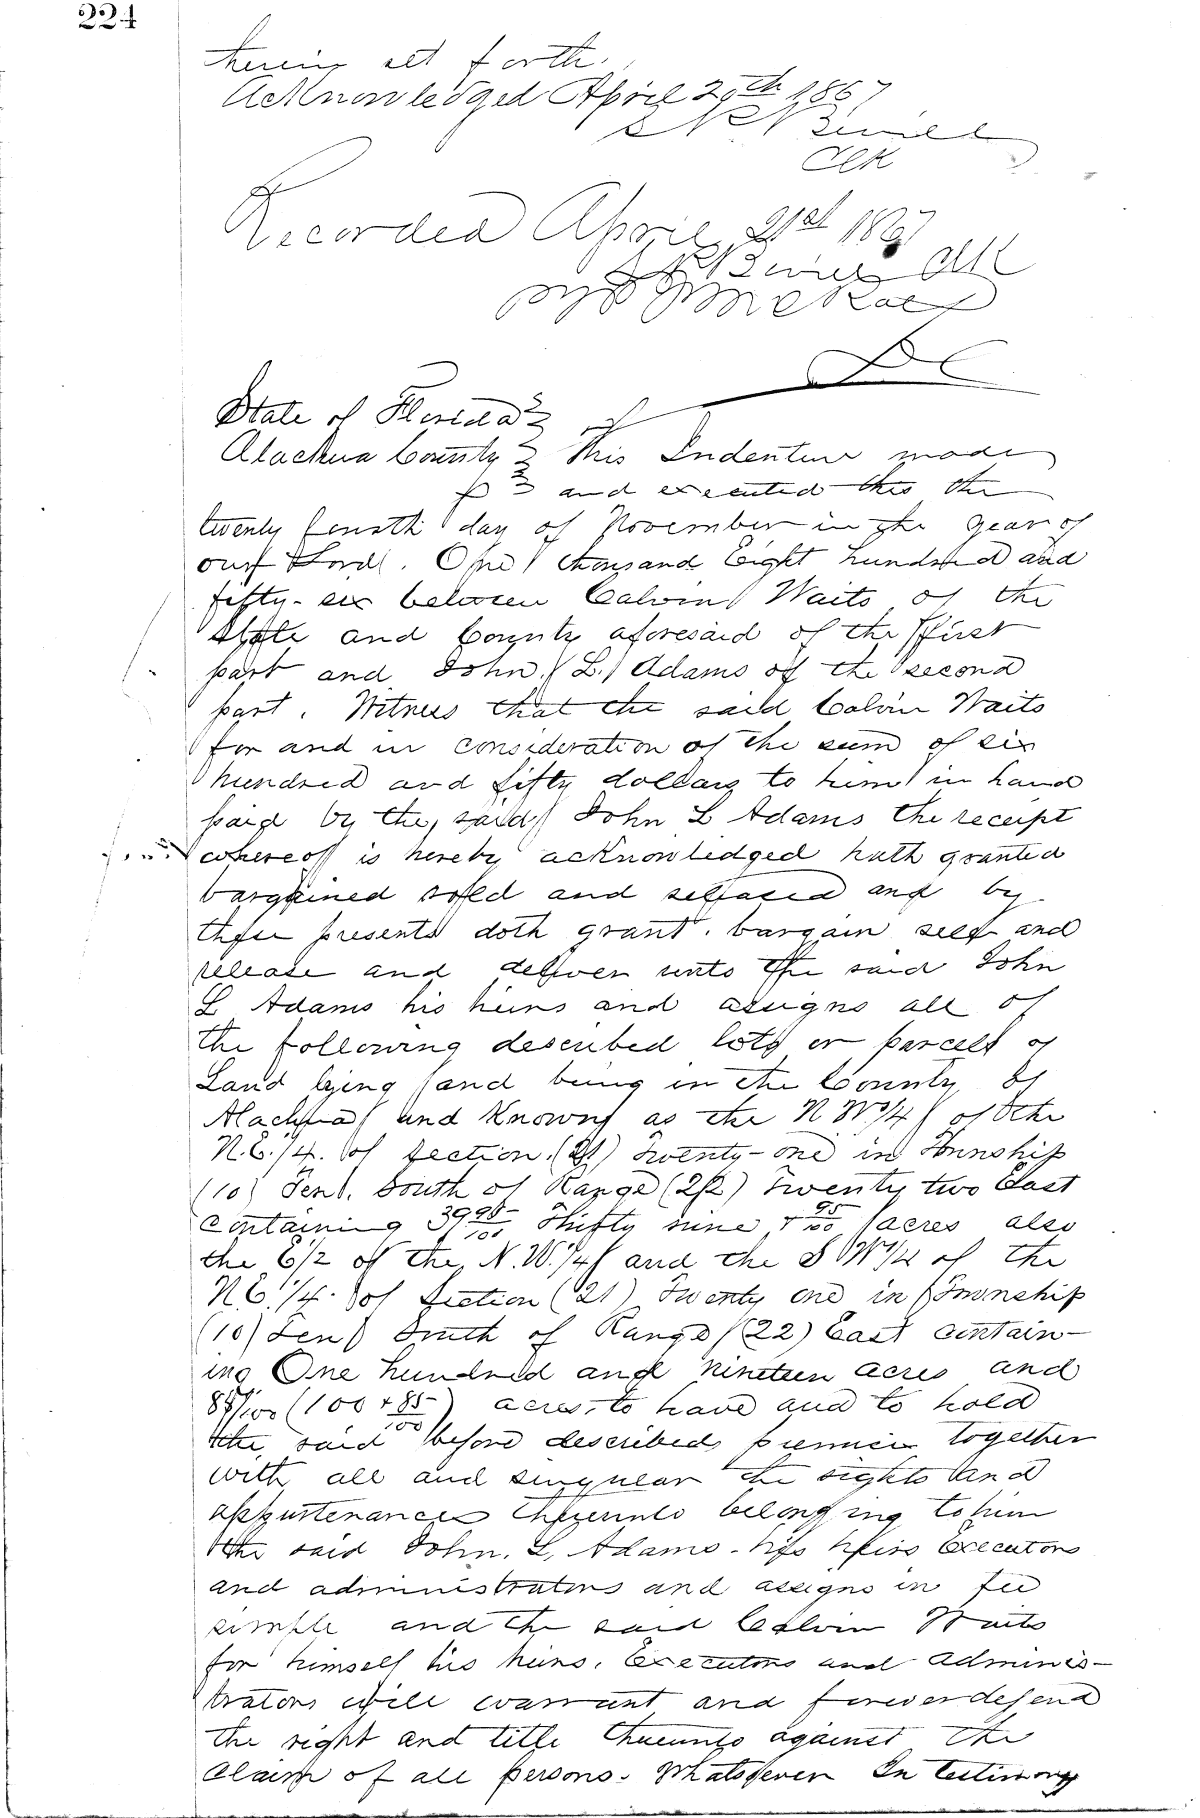 224
herein set forth.
Acknowledged April 20th 1867
Clk
Recorded April 21st 1867
Clk
by
DC
State of Florida
Alachua County This Indenture made
and executed this the
twenty fourth day of November in the year of
our Lord. One thousand Eight hundred and
fifty-six between Calvin Waits of the
State and County aforesaid of the first
part and John L. Adams of the second
part. Witness that the said Calvin Waits
for and in consideration of the sum of six
hundred and fifty dollars to him in hand
paid by the said John L Adams the receipt
whereof is hereby acknowledged hath granted
bargained sold and released and by
these presents doth grant. bargain sell and
release and deliver unto the said John
L Adams his heirs and assigns all of
the following described lots or parcels of
Land lying and being in the County of
Alachua and Known as the N W 1/4 of the
N.E. 1/4. of section. (21) Twenty-one in Township
(10) Ten. South of Range (22) Twenty two East
containing 39 95/100 Thifty nine + 95/100 acres also
the E 1/2 of the N.W. 1/4 and the S W 1/4 of the
N.E. 1/4. of Section (21) Twenty one in Township
(10) Ten South of Range (22) East contain-
ing One hundred and nineteen acres and
85/100 (100 + 85/100) acres, to have and to hold
the said before described premises together
with all and singular the rights and
appurtenances thereunto belonging to him
the said John. L. Adams. his heirs Executors
and administrators and assigns in fee
simple and the said Calvin Waits
for himself his heirs. Executors and adminis-
trators will warrant and forever defend
the right and title thereunto against the
claim of all persons. Whatsoever In testimony